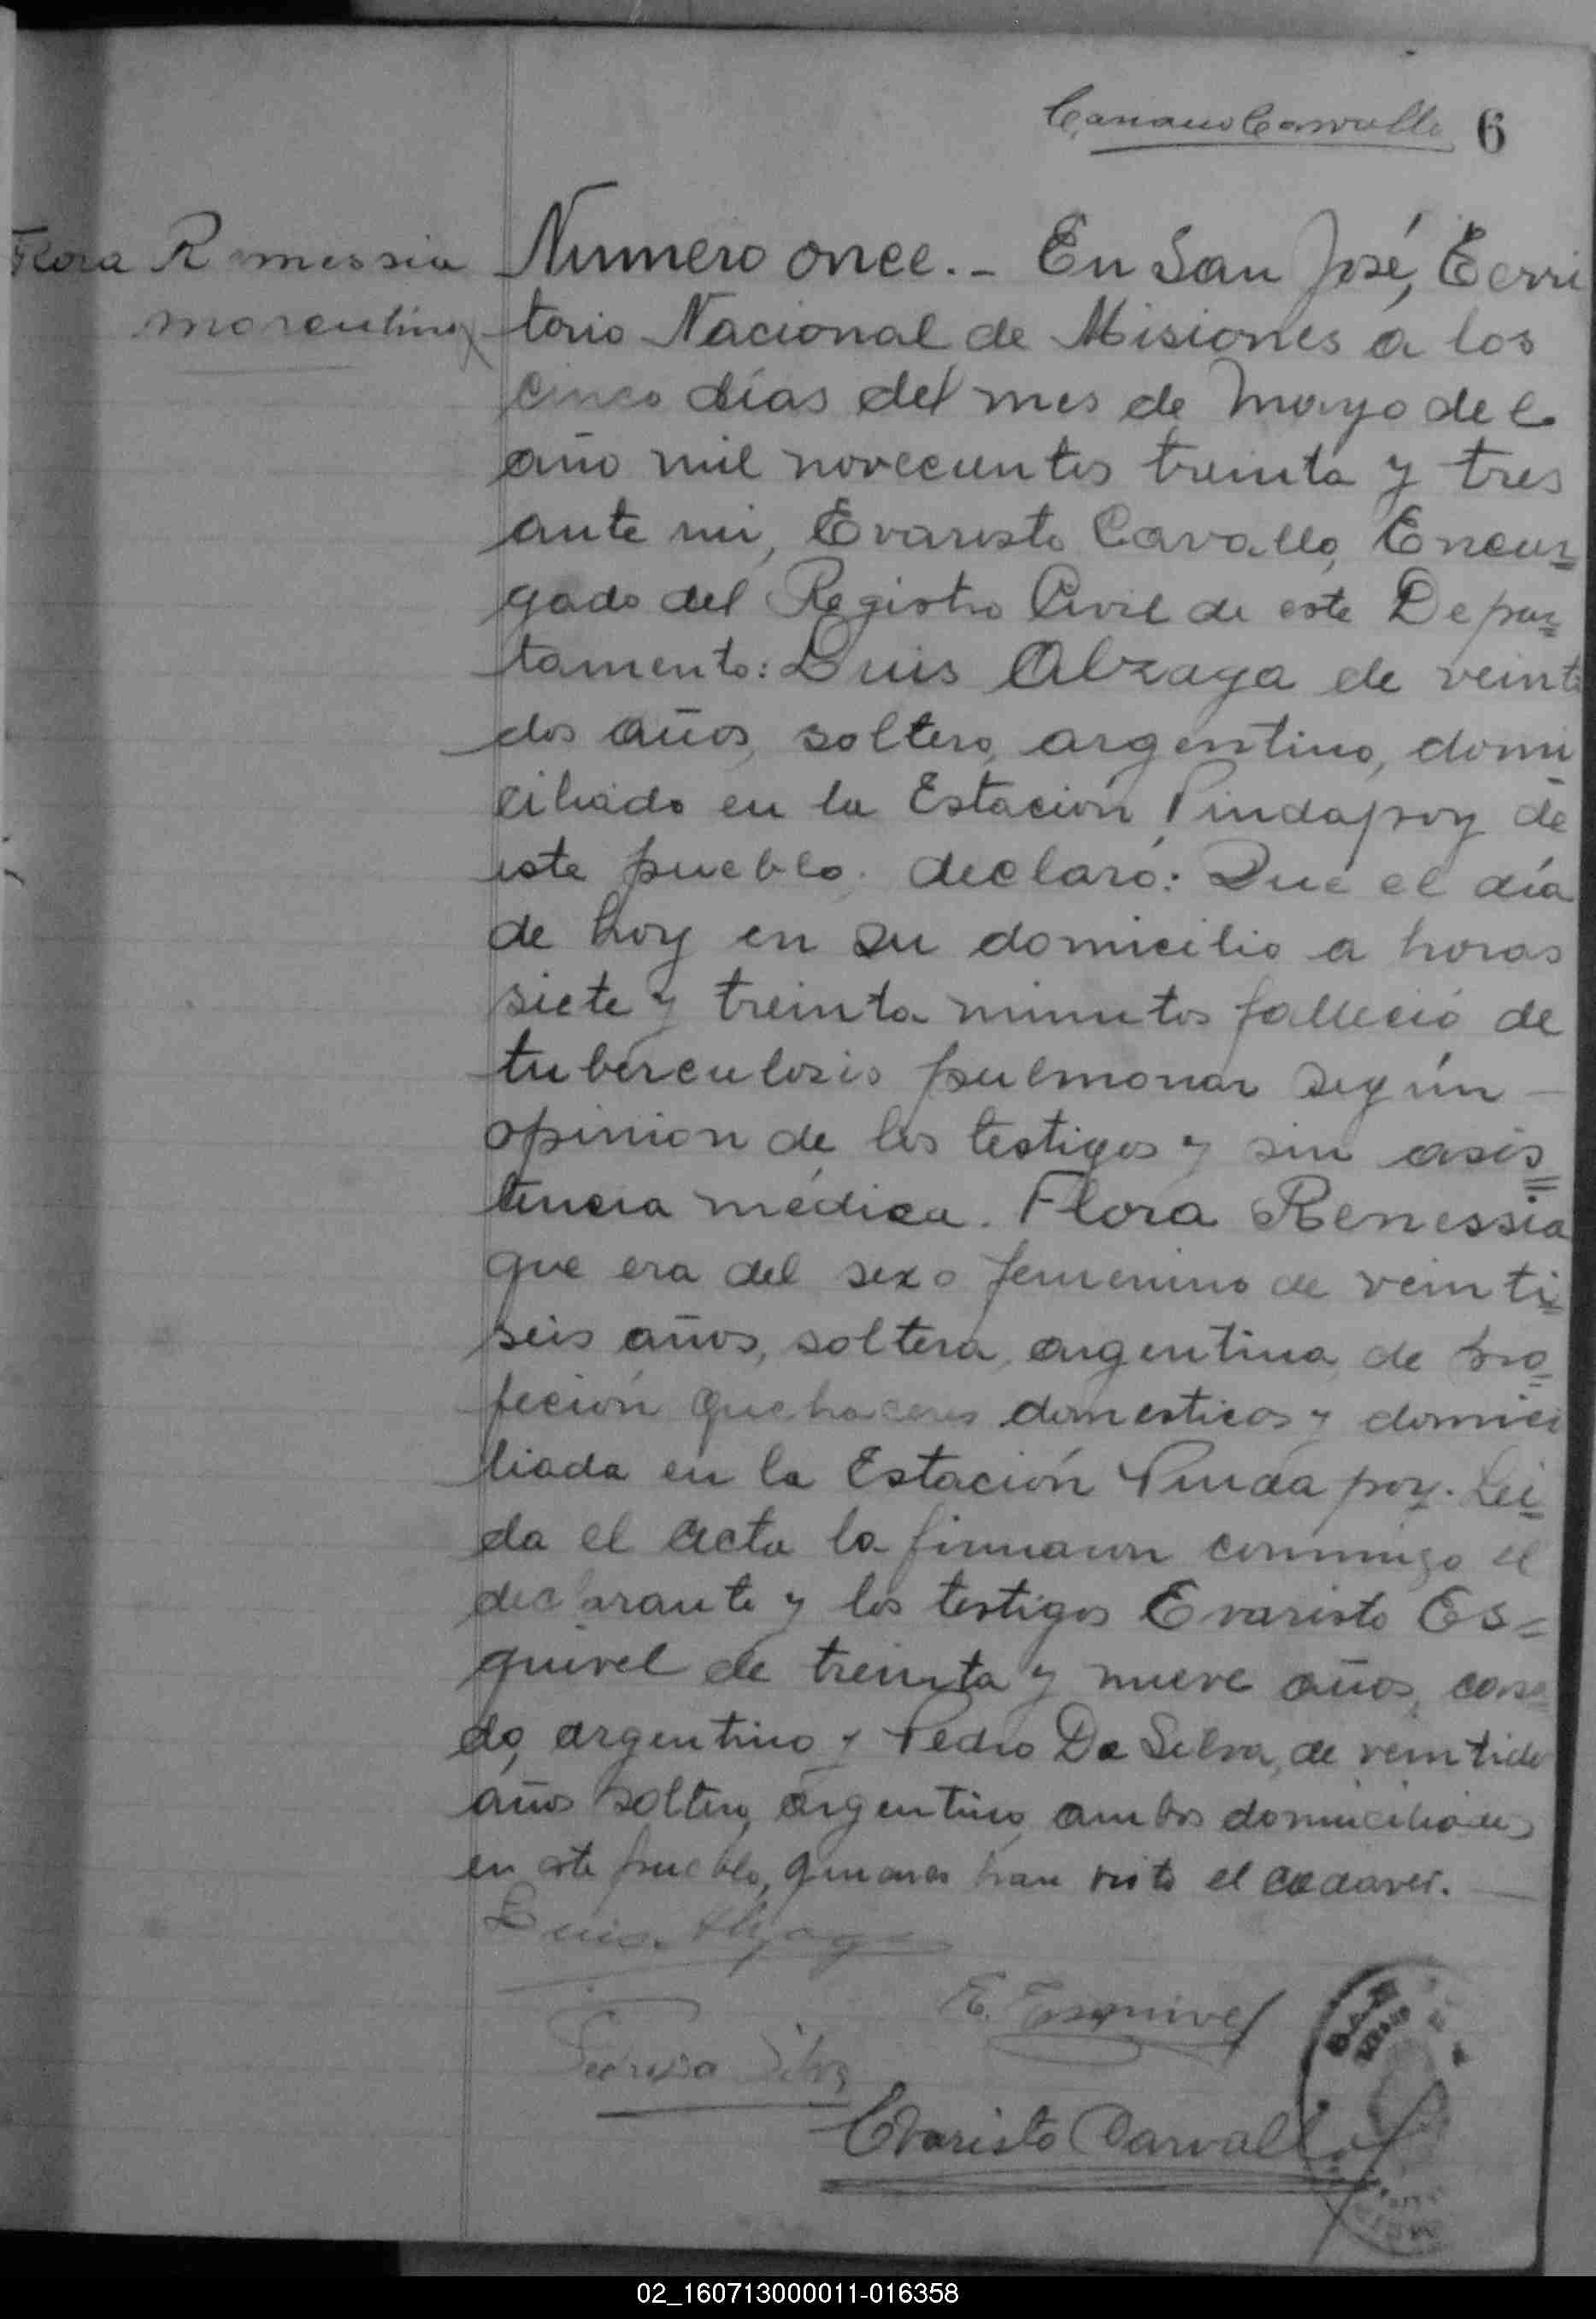 6
Flora
Numero once. - En San José, Terri
torio Nacional de Misiones a los
cinco días del mes de Mayo del
año mil novecientos treinta y tres
ante mi, Evaristo Carvallo, Encar=
gado del Registro Civil de este Depar=
tamento: Luis Alzaga de veinti
dos años, soltero, argentino, domi
ciliado en la Estación Pindapoy de
este pueblo. declaró: Que el día
de hoy en su domicilio a horas
siete y treinta minutos falleció de
tuberculosis pulmonar según -
opinion de los testigos y sin asis=
tencia médica. Flora Renessia
que era del sexo femenino de veinti=
seis años, soltera, argentina, de pro=
feción quehaceres domesticos y domici
liada en la Estación Pindapoy. Lei=
da el acta la firmaron conmigo el
declarante y los testigos Evaristo Es=
quivel de treinta y nueve años, casa
do, argentino y Pedro Da Silva, de veintidos
años soltero, argentino, ambos domiciliados
en este pueblo, quienes han visto el cadaver.
Luis Alzaga
E. Esquivel
Silva
Evaristo Carvallo
02_160713000011-016358